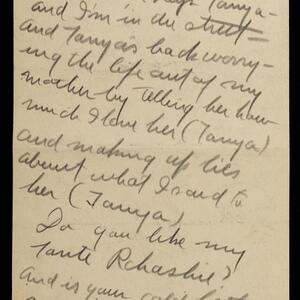 says Tanya-
and I'm in the street-
and Tanya is back worry-
ing the life out of my
mother by telling her how
much I love her (Tanya)
and making up lies
about what I said to
her (Tanya)
Do you like my
Tante
and is your